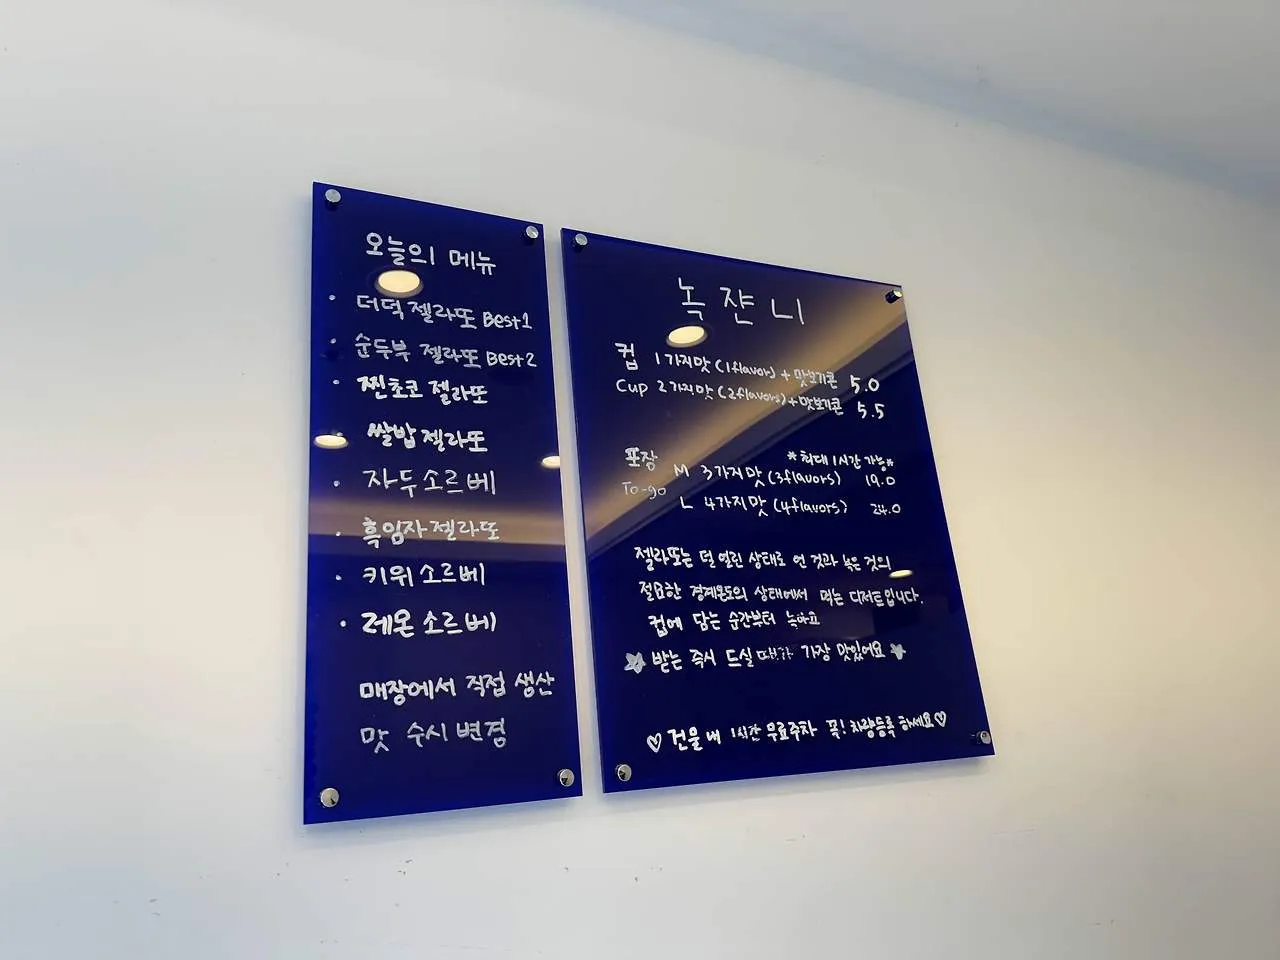 오늘의 메뉴
· 더덕 젤라또 Best1
· 순두부 젤라또 Best2
· 찐초코 젤라또
· 쌀밥 젤라또
· 자두 소르베
· 흑임자 젤라또
· 키위 소르베
· 레몬 소르베
매장에서 직접 생산
맛 수시 변경
녹쟌니
컵 1가지맛 (1flavor) + 맛보기콘 5.0
Cup 2가지맛 (2flavors) + 맛보기콘 5.5
포장 *최대 1시간 가능*
To-go M 3가지 맛 (3flavors) 19.0
L 4가지 맛 (4flavors) 24.0
젤라또는 덜 얼린 상태로 언 것과 녹은 것의
절묘한 경계온도의 상태에서 먹는 디저트입니다.
컵에 담는 순간부터 녹아요
☆ 받는 즉시 드실 때가 가장 맛있어요 ☆
♡ 건물 내 1시간 무료주차 꼭! 차량등록 하세요 ♡